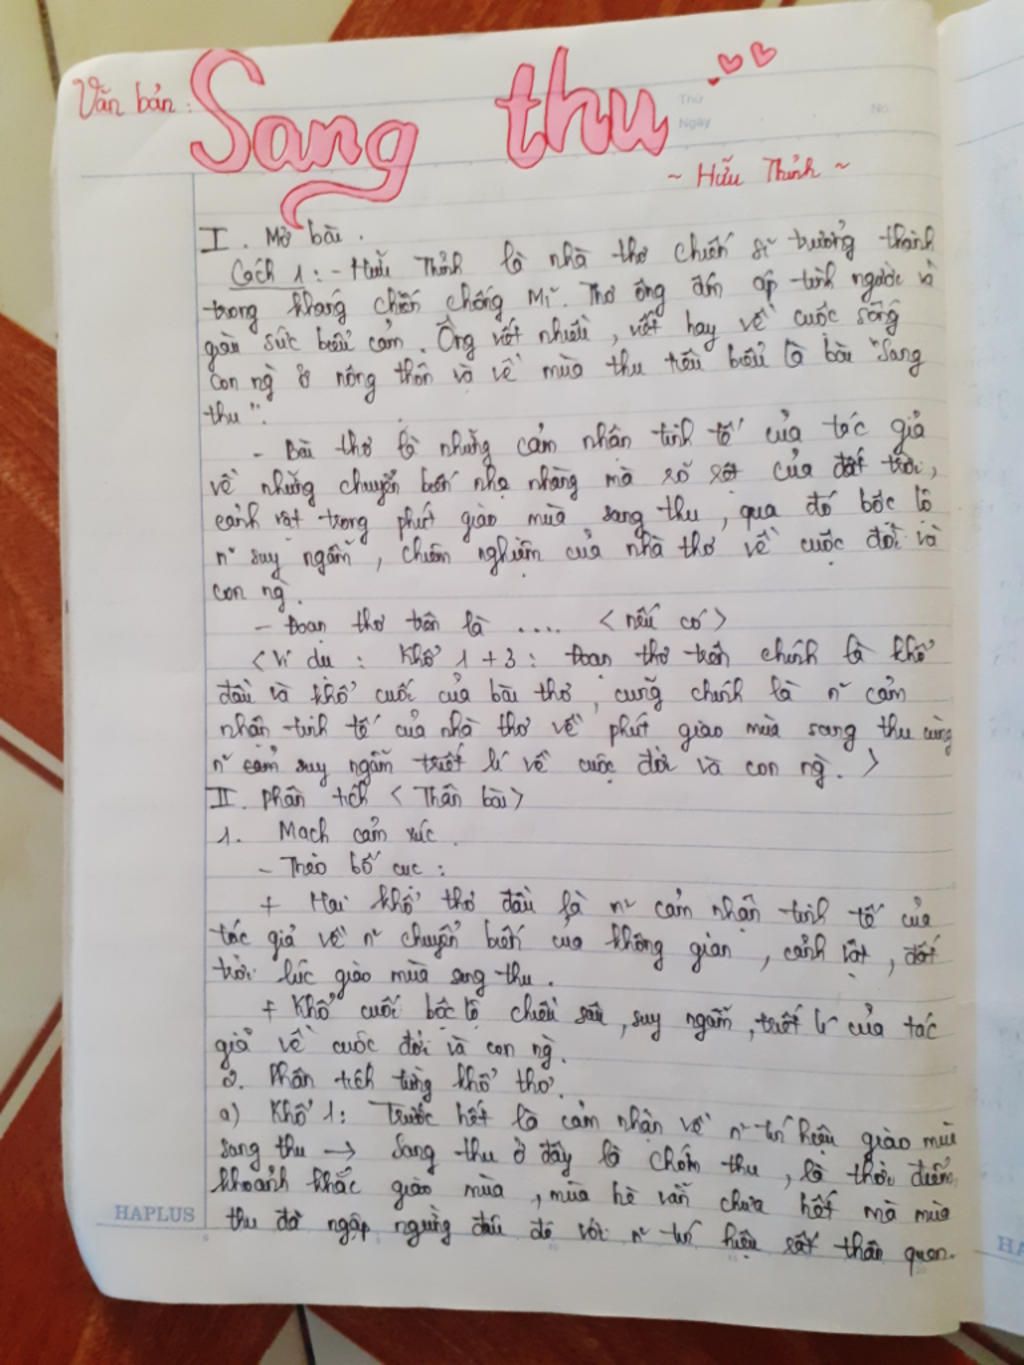 Văn bản : Sang thu
Thứ
Ngày
No.
~ Hữu Thỉnh ~
I. Mở bài.
Cách 1: - Hữu Thỉnh là nhà thơ chiến sĩ trưởng thành
trong kháng chiến chống Mĩ. Thơ ông ấm áp tình người và
giàu sức biểu cảm. Ông viết nhiều, viết hay về cuộc sống
con ng̀ ở nông thôn và về mùa thu tiêu biểu là bài "Sang
thu".
- Bài thơ là những cảm nhận tinh tế của tác giả
về những chuyển biến nhẹ nhàng mà rõ rệt của đất trời,
cảnh vật trong phút giao mùa sang thu, qua đó bộc lộ
n~ suy ngẫm, chiêm nghiệm của nhà thơ về cuộc đời và
con ng̀.
- Đoạn thơ trên là .... <nếu có>
<Ví dụ : Khổ 1 + 3 : Đoạn thơ trên chính là khổ
đầu và khổ cuối của bài thơ, cũng chính là n~ cảm
nhận tinh tế của nhà thơ về phút giao mùa sang thu cùng
n~ cảm suy ngẫm triết lí về cuộc đời và con ng̀. >
II. Phân tích <Thân bài>
1. Mạch cảm xúc.
- Theo bố cục :
+ Hai khổ thơ đầu là n~ cảm nhận tinh tế của
tác giả về n~ chuyển biến của không gian, cảnh vật, đất
trời lúc giao mùa sang thu.
+ Khổ cuối bộc lộ chiều sâu, suy ngẫm, triết lí của tác
giả về cuộc đời và con ng̀.
2. Phân tích từng khổ thơ.
a) Khổ 1: Trước hết là cảm nhận về n~ tín hiệu giao mùa
sang thu → Sang thu ở đây là chớm thu, là thời điểm,
khoảnh khắc giao mùa, mùa hè vẫn chưa hết mà mùa
thu đã ngập ngừng đâu đó với n~ tín hiệu rất thân quen.
HAPLUS